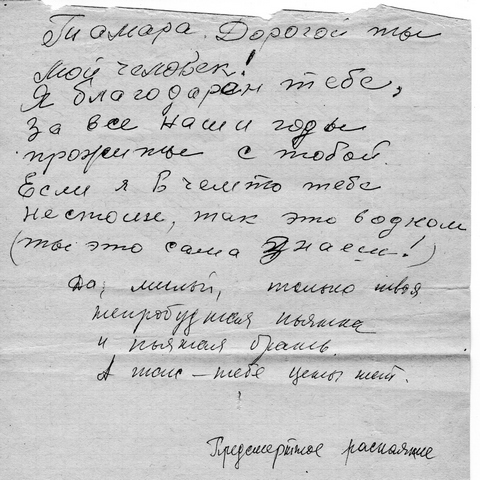 Тамара. Дорогой ты
мой человек!
Я благодарен тебе,
за все наши годы
прожитые с тобой.
Если я в чемто тебе
нестоил, так это в одном
(ты это сама знаеш!)
Да, милый, только твоя
непробудная пьянка
и пьяная брань.
А так – тебе цены нет.
Предсмертное раскаяние